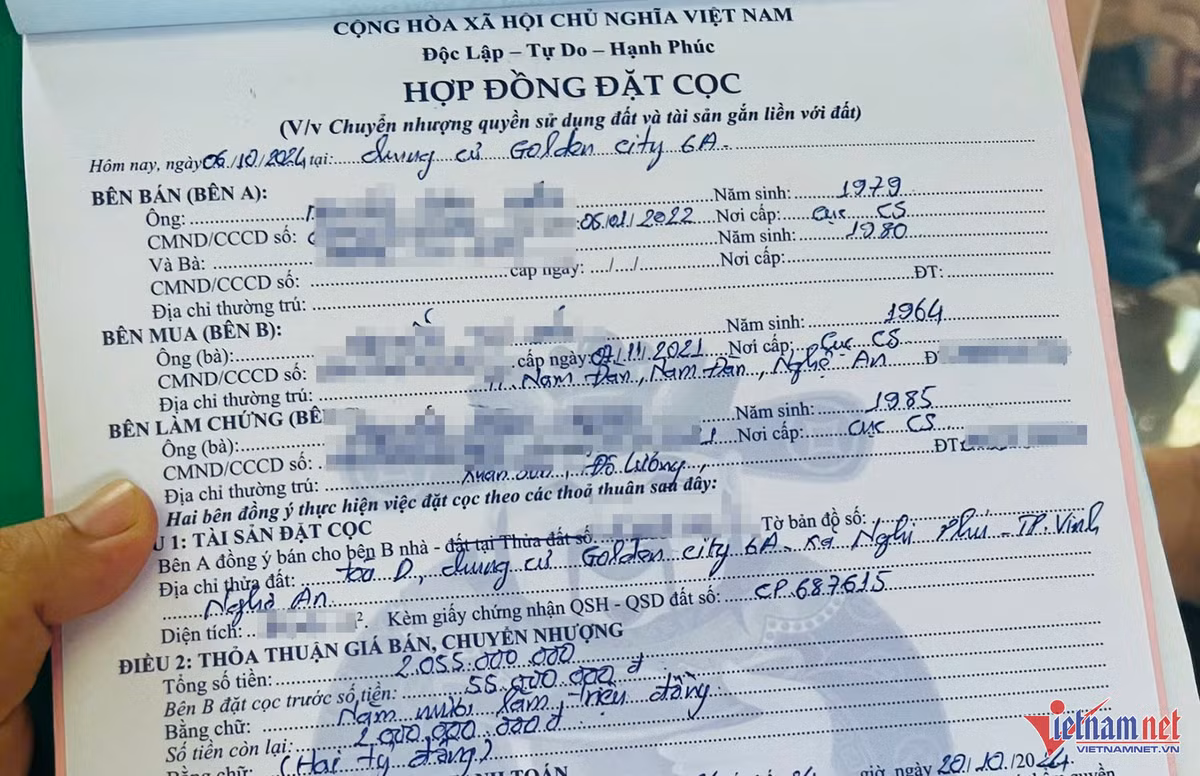 CỘNG HÒA XÃ HỘI CHỦ NGHĨA VIỆT NAM
Độc Lập – Tự Do – Hạnh Phúc
HỢP ĐỒNG ĐẶT CỌC
(V/v Chuyển nhượng quyền sử dụng đất và tài sản gắn liền với đất)
Hôm nay, ngày 06/10/2024 tại: chung cư Golden city 6A.
BÊN BÁN (BÊN A):
Ông: Năm sinh: 1979
CMND/CCCD số: 05/01/2022 Nơi cấp: cục CS
Và Bà: Năm sinh: 1980
CMND/CCCD số: cấp ngày: .../.../ Nơi cấp:
Địa chỉ thường trú: ĐT:
BÊN MUA (BÊN B):
Ông (bà): Năm sinh: 1964
CMND/CCCD số: cấp ngày: 07/11/2021 Nơi cấp: cục CS
Địa chỉ thường trú: Nam Đàn, Nam Đàn, Nghệ An Đ
BÊN LÀM CHỨNG (BÊN
Ông (bà): Năm sinh: 1985
CMND/CCCD số: 1 Nơi cấp: cục CS
Địa chỉ thường trú: Đô Lương, ĐT:
Hai bên đồng ý thực hiện việc đặt cọc theo các thoả thuận sau đây:
U 1: TÀI SẢN ĐẶT CỌC
Bên A đồng ý bán cho bên B nhà - đất tại Thửa đất số Tờ bản đồ số:
Địa chỉ thửa đất: toà D, chung cư Golden city 6A - xã Nghi Phú - TP. Vinh
Nghệ An
Diện tích: ². Kèm giấy chứng nhận QSH - QSD đất số: CP 687615
ĐIỀU 2: THỎA THUẬN GIÁ BÁN, CHUYỂN NHƯỢNG
Tổng số tiền: 2.055.000.000
Bên B đặt cọc trước số tiền: 55.000.000 đ
Bằng chữ: Năm mươi lăm triệu đồng
Số tiền còn lại: 2.000.000.000đ
Bằng chữ: (Hai tỷ đồng)
TOÁN giờ, ngày 20/10/2024
Vietnamnet
VIETNAMNET.VN